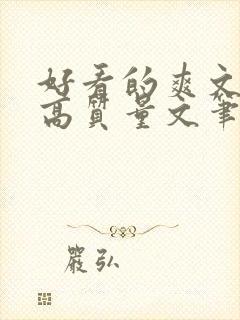 好看的爽文
高質量文筆
嚴弘